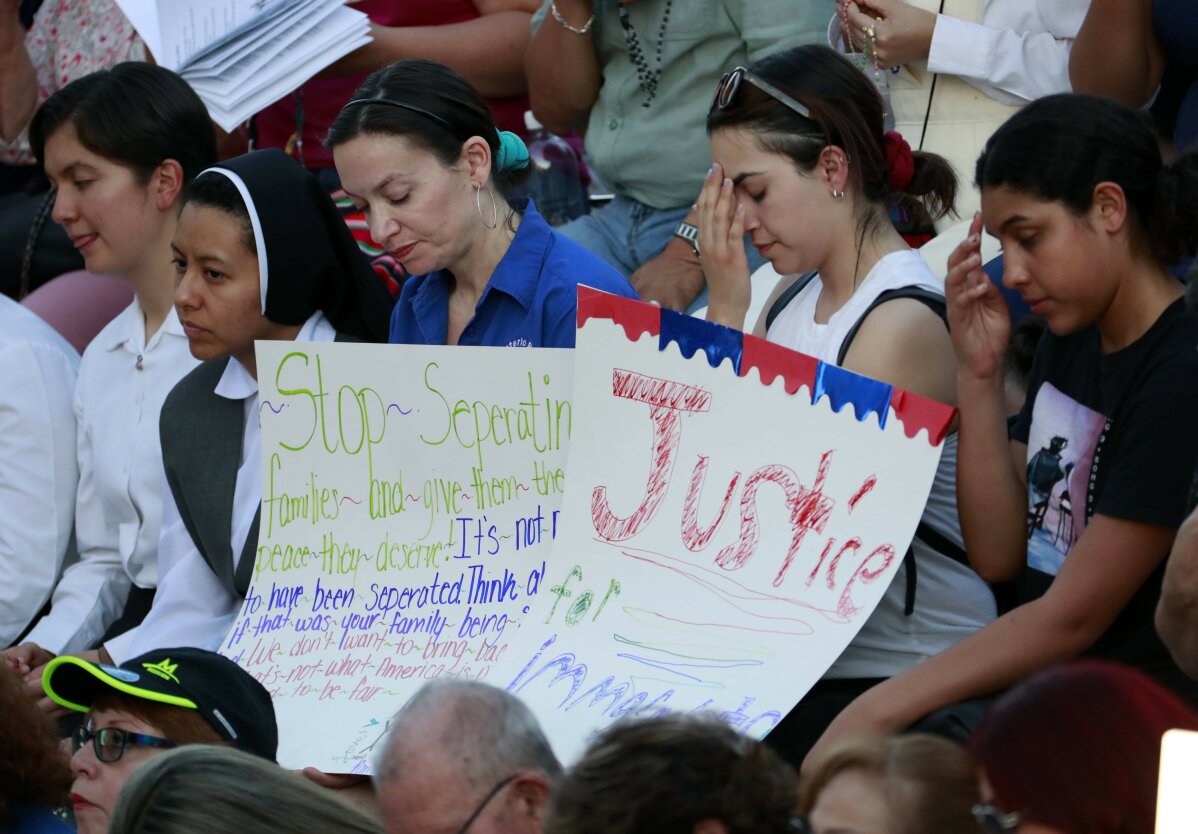 ~Stop~Seperatin
families~and~give~them~the
peace~they~deserve! It's~not
to~have~been~seperated. Think
if~that~was~your~family~being
We~don't~want~to~bring
that's~not~what~America~is
to~be~fair
Justice
for